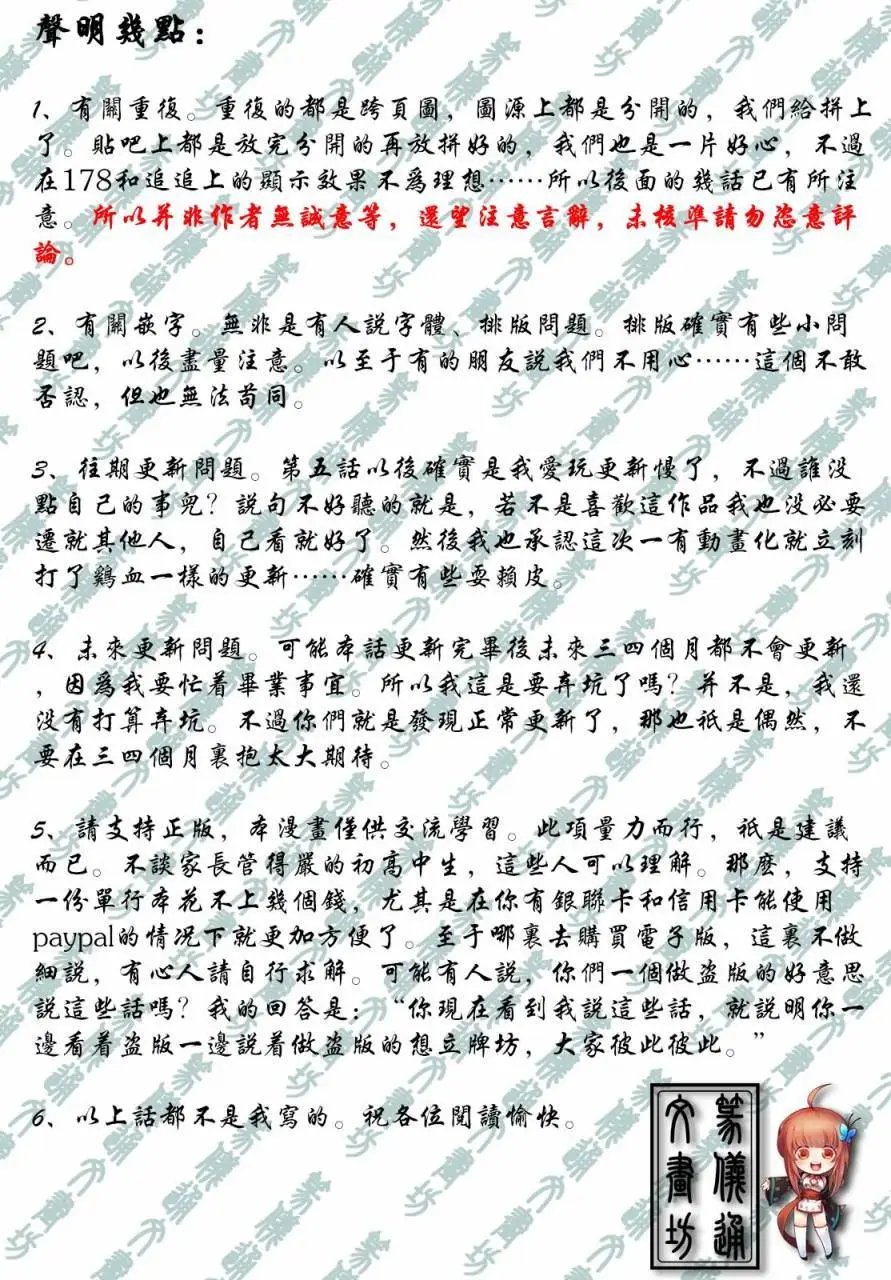 聲明幾點:
1、有關重復。重復的都是跨頁圖,圖源上都是分開的,我們給拼上
了。貼吧上都是放完分開的再放拼好的,我們也是一片好心,不過
在178和追追上的顯示效果不爲理想……所以後面的幾話已有所注
意。所以并非作者無誠意等,還望注意言辭,未核準請勿恣意評
論。
2、有關嵌字。無非是有人說字體、排版問題。排版確實有些小問
題吧,以後盡量注意。以至于有的朋友說我們不用心……這個不敢
否認,但也無法苟同。
3、往期更新問題。第五話以後確實是我愛玩更新慢了,不過誰没
點自己的事兒?説句不好聽的就是,若不是喜歡這作品我也没必要
遷就其他人,自己看就好了。然後我也承認這次一有動畫化就立刻
打了鷄血一樣的更新……確實有些耍賴皮。
4、未來更新問題。可能本話更新完畢後未來三四個月都不會更新
,因爲我要忙着畢業事宜。所以我這是要弃坑了嗎?并不是,我還
没有打算弃坑。不過你們就是發現正常更新了,那也祇是偶然,不
要在三四個月裏抱太大期待。
5、請支持正版,本漫畫僅供交流學習。此項量力而行,祇是建議
而已。不談家長管得嚴的初高中生,這些人可以理解。那麽,支持
一份單行本花不上幾個錢,尤其是在你有銀聯卡和信用卡能使用
paypal的情况下就更加方便了。至于哪裏去購買電子版,這裏不做
細説,有心人請自行求解。可能有人説,你們一個做盗版的好意思
説這些話嗎?我的回答是:“你現在看到我説這些話,就説明你一
邊看着盗版一邊説着做盗版的想立牌坊,大家彼此彼此。”
6、以上話都不是我寫的。祝各位閱讀愉快。
篆儀通
文畫坊